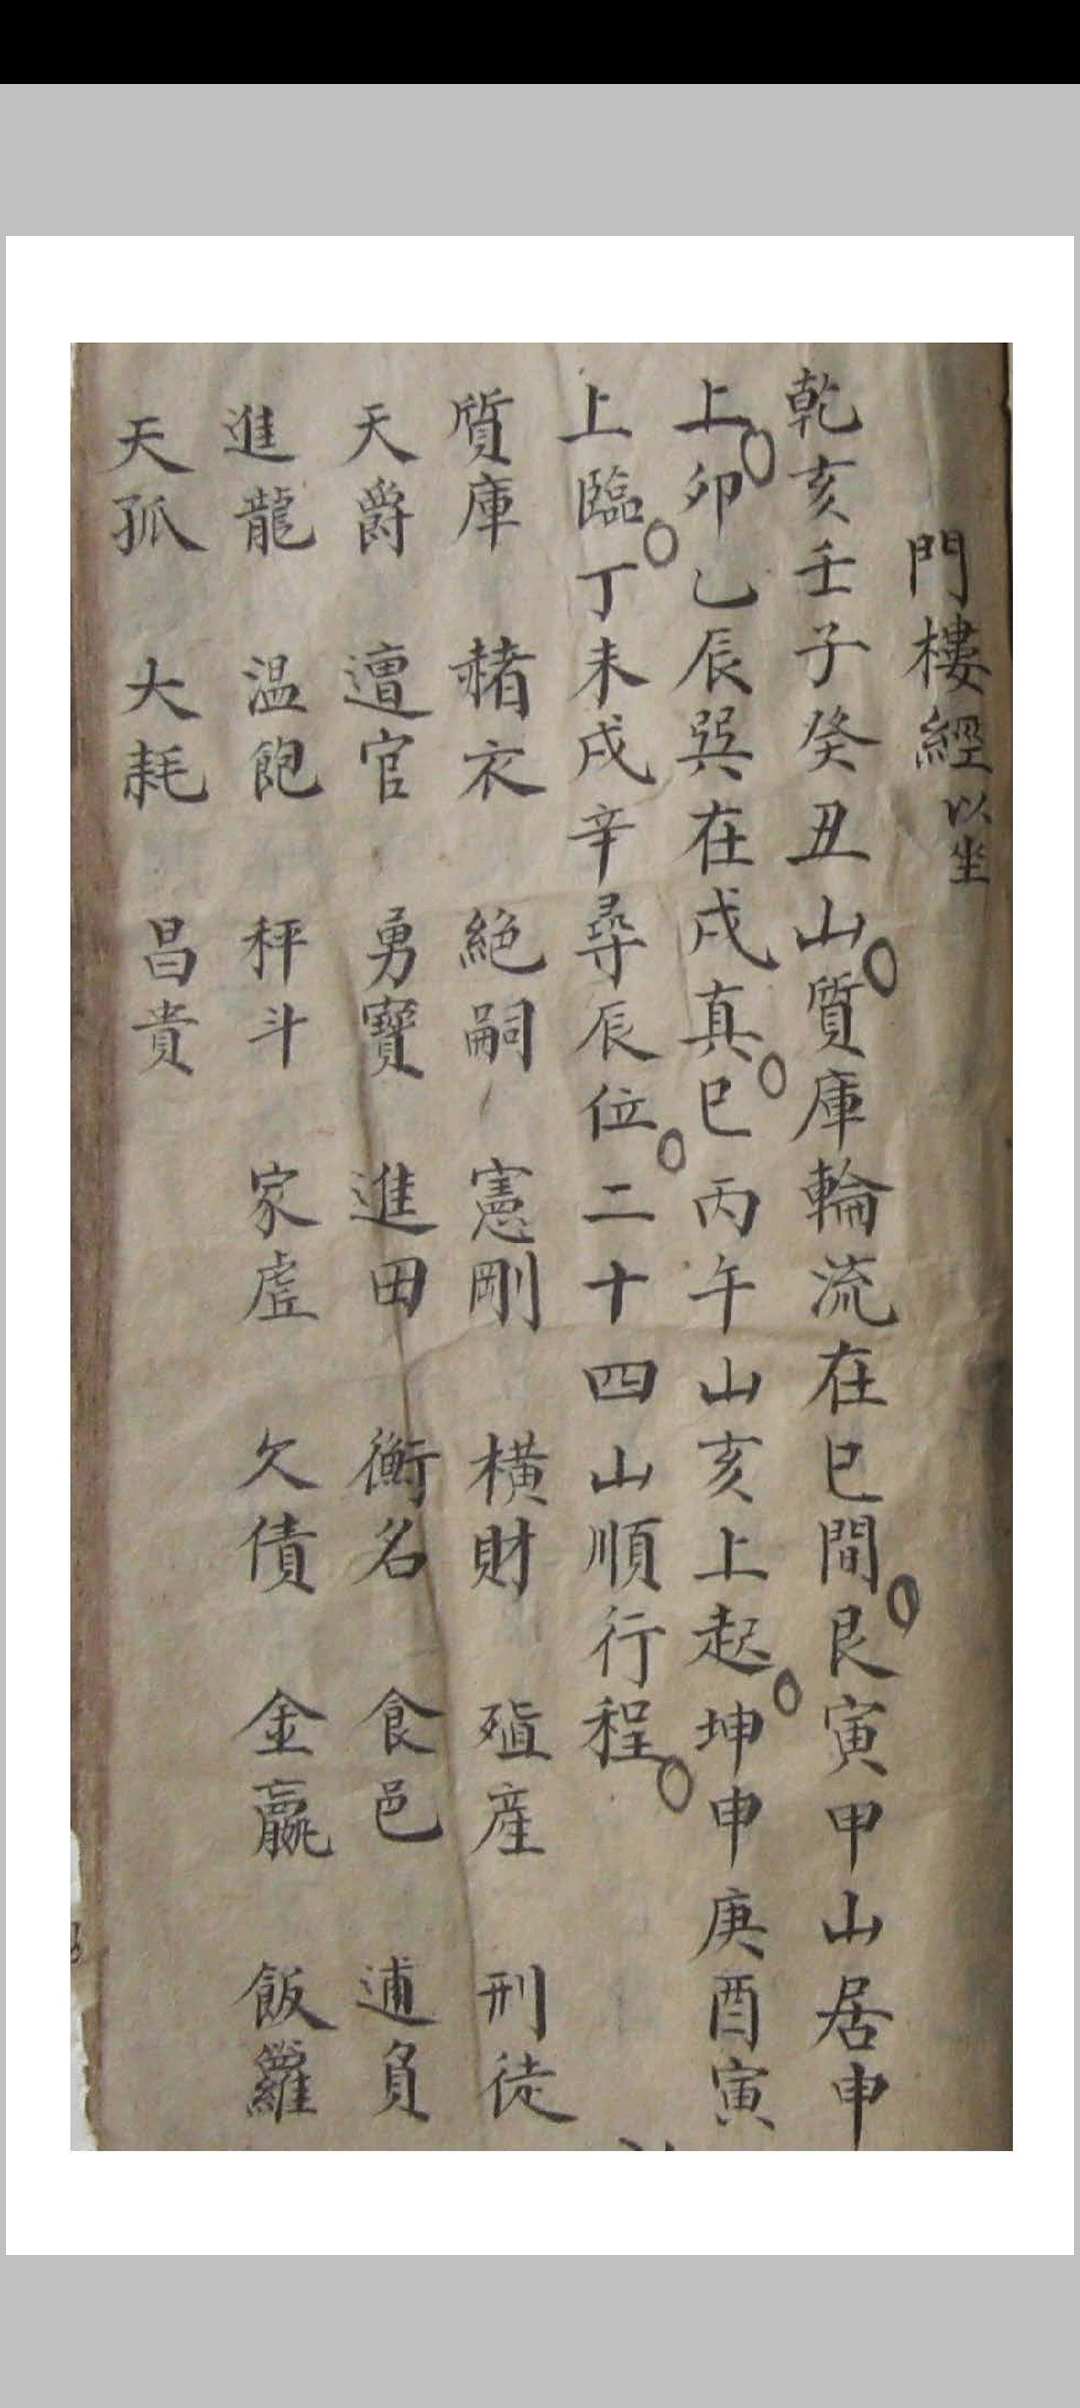 門樓經以坐
乾亥壬子癸丑山質庫輪流在巳間艮寅甲山居申
上卯乙辰巽在戌真巳丙午山亥上起坤申庚酉寅
上臨丁未戌辛尋辰位二十四山順行程
質庫 赭衣 絕嗣 憲剛 橫財 殖產 刑徒
天爵 邅官 勇寶 進田 衡名 食邑 逋負
進龍 温飽 秤斗 家虛 欠債 金贏 飯籮
天孤 大耗 昌貴